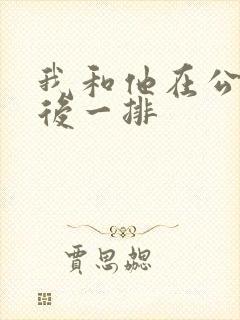 我和他在公
後一排
賈思勰